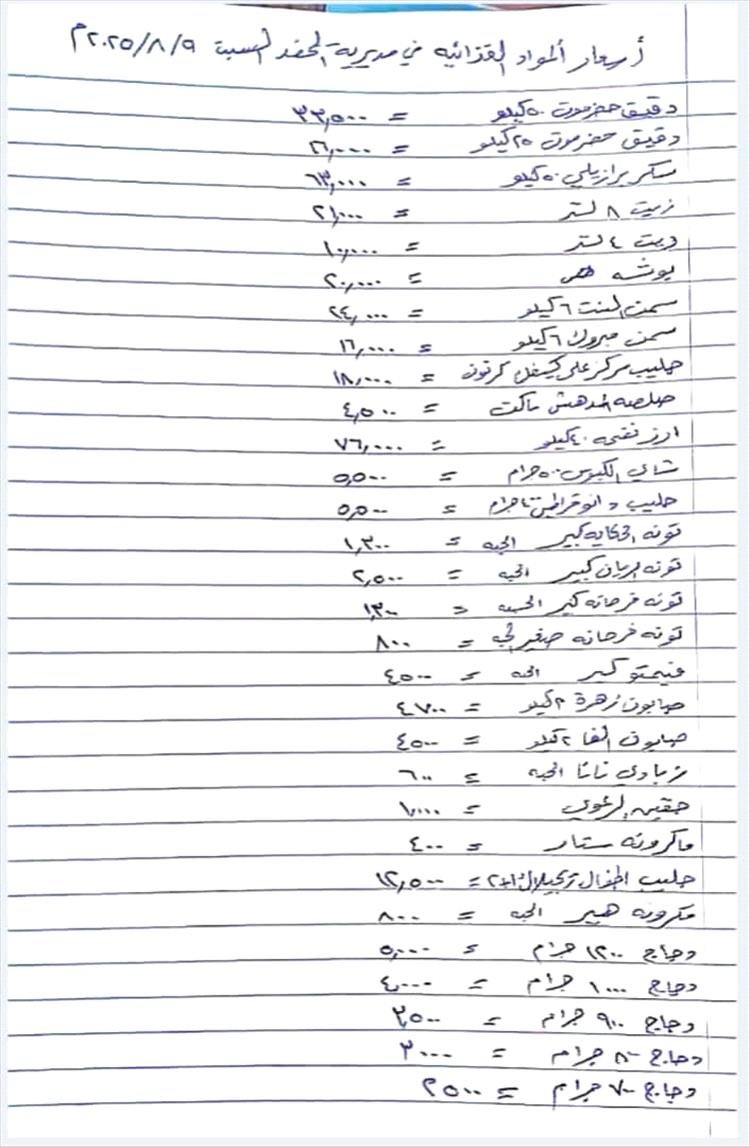 أسعار المواد الغذائيه في مديرية المحفد السبت ٢٠٢٥/٨/٩م
دقيق حضرموت ٥٠ كيلو = ٣٣,٥٠٠
دقيق حضرموت ٢٥ كيلو =
سكر برازيلي ٥٠ كيلو = ٦٣,٠٠٠
زيت ٨ لتر = ٢١,٠٠٠
زيت ٤ لتر = ١٠,٠٠٠
= ٢٠,٠٠٠
سمن البنت ٦ كيلو = ٢٤,٠٠٠
سمن مبروك ٦ كيلو = ١٦,٠٠٠
حليب مركز على كيفك كرتون = ١٨,٠٠٠
صلصه المدهش باكت = ٤,٥٠٠
ارز نفحه ٤٠ كيلو = ٧٦,٠٠٠
شاي الكبوس ٥٠٠ جرام = ٥,٥٠٠
حليب دانو جرام = ٥,٥٠٠
تونه الحكايه كبير الحبه = ١,٣٠٠
تونه الريان كبير الحبه = ٢,٥٠٠
تونه فرحانه كبير الحبه = ١,٣٠٠
تونه فرحانه صغير = ٨٠٠
فيمتو كبير الحبه = ٤٥٠٠
صابون زهرة ٢ كيلو = ٤٧٠٠
صابون الفا ٢ كيلو = ٤٥٠٠
زبادي نانا الحبه = ٦٠٠
حقين = ١,٠٠٠
ماكرونه ستار = ٤٠٠
حليب اطفال = ١٢,٥٠٠
مكرونه هبير الحبه = ٨٠٠
دجاج ١٢٠٠ جرام = ٥,٠٠٠
دجاج ١٠٠٠ جرام = ٤,٠٠٠
دجاج ٩٠٠ جرام = ٣,٥٠٠
دجاج ٨٠٠ جرام = ٣٠٠٠
دجاج ٧٠٠ جرام = ٢٥٠٠